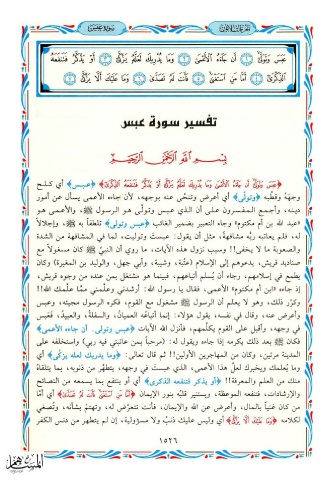 سورة عبس
الجزء الثلاثون
عَبَسَ وَتَوَلَّىٰ ۝١ أَن جَاءَهُ الْأَعْمَىٰ ۝٢ وَمَا يُدْرِيكَ لَعَلَّهُ يَزَّكَّىٰ ۝٣ أَوْ يَذَّكَّرُ فَتَنفَعَهُ
الذِّكْرَىٰ ۝٤ أَمَّا مَنِ اسْتَغْنَىٰ ۝٥ فَأَنتَ لَهُ تَصَدَّىٰ ۝٦ وَمَا عَلَيْكَ أَلَّا يَزَّكَّىٰ ۝٧
تفسير سورة عبس
بسم الله الرحمن الرحيم
﴿عَبَسَ وَتَوَلَّىٰ أَن جَاءَهُ الْأَعْمَىٰ وَمَا يُدْرِيكَ لَعَلَّهُ يَزَّكَّىٰ أَوْ يَذَّكَّرُ فَتَنفَعَهُ الذِّكْرَىٰ﴾ ﴿عبس﴾ أي كلح
وجهه وقطبه ﴿وتولى﴾ أي أعرض وتنحى عنه بوجهه، لأن جاءه الأعمى يسأل عن أمور
دينه، وأجمع المفسرون على أن الذي عبس وتولى هو الرسول ﷺ، والأعمى هو
«عبد الله بن أم مكتوم» وجاء التعبير بضمير الغائب ﴿عبس وتولى﴾ تلطفاً به ﷺ، وإجلالاً
له، فلم يعاتبه ربه مشافهة، مثل أن يقول: عبست وتوليت، لما في المشافهة من الشدة
والصعوبة ما لا يخفى!! وسبب نزول هذه الآيات، ما روي أن النبي ﷺ كان مشغولاً مع
صناديد قريش، يدعوهم إلى الإسلام (عتبة، وشيبة، وأبي جهل، والوليد بن المغيرة) وكان
يطمع في إسلامهم، رجاء أن يسلم أتباعهم، فبينما هو مشتغل بمن عنده من وجوه قريش،
إذ جاءه «ابن أم مكتوم» الأعمى، فقال يا رسول الله: أرشدني وعلمني مما علمك الله!!
وكرر ذلك، وهو لا يعلم أن الرسول ﷺ مشغول مع القوم، فكره الرسول مجيئه، وعبس
وأعرض عنه، وقال في نفسه، يقول هؤلاء: إنما أتباعه العميان، والسفلة، والعبيد!! فعبس
في وجهه، وأقبل على القوم يكلمهم، فأنزل الله الآيات ﴿عبس وتولى. أن جاءه الأعمى﴾
فكان ﷺ بعد ذلك يكرمه إذا جاءه ويقول له: (مرحباً بمن عاتبني فيه ربي) واستخلفه على
المدينة مرتين، وكان من المهاجرين الأولين!! ثم قال تعالى: ﴿وما يدريك لعله يزكى﴾ أي
وما يُعلمك ويخبرك لعل هذا الأعمى، الذي عبست في وجهه، يتطهر من ذنوبه، بما يتلقاه
منك من العلم والمعرفة!! ﴿أو يذكر فتنفعه الذكرى﴾ أي أو ينتفع بما يسمعه من النصائح
والإرشادات، فتنفعه الموعظة، ويستنير قلبه بنور الإيمان ﴿أَمَّا مَنِ اسْتَغْنَىٰ فَأَنتَ لَهُ تَصَدَّىٰ﴾ أي أما
من كان غنياً بالمال، وأعرض عن الله والإيمان، فأنت تتعرض له، وتهتم بشأنه، وتصغي
لكلامه ﴿وَمَا عَلَيْكَ أَلَّا يَزَّكَّىٰ﴾ أي وليس عليك ذنب ولا مسؤولية، إن لم يتطهر من دنس الكفر
١٥٢٦